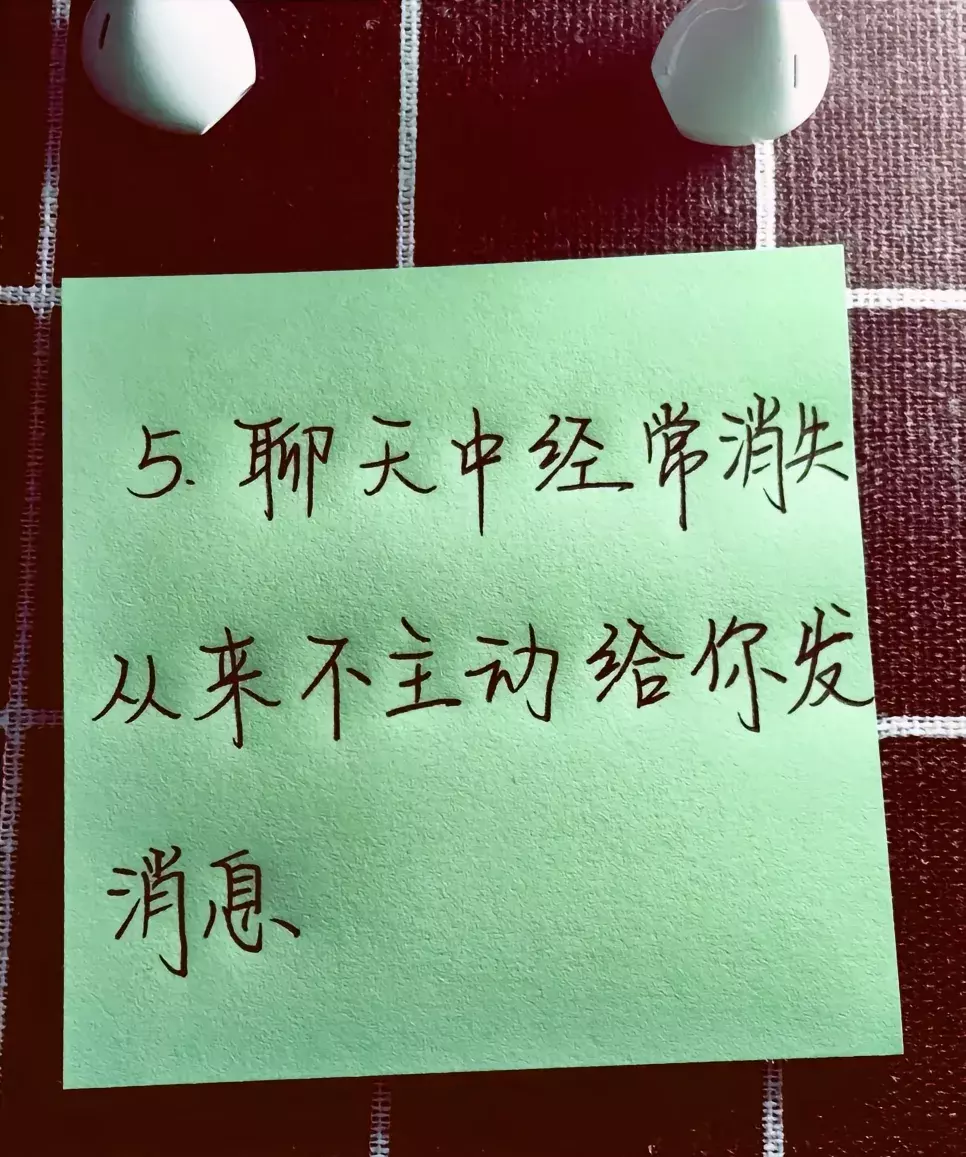 5. 聊天中经常消失
从来不主动给你发
消息